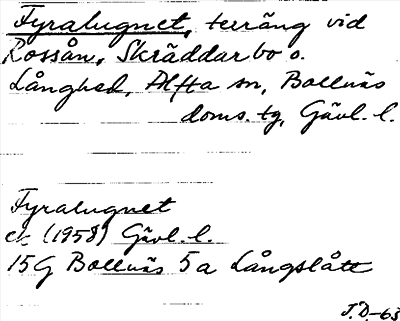 Fyralugnet, terräng vid
Rossån, Skräddarbo o.
Långhed, Alfta sn, Bollnäs
doms. tg, Gävl. l.
Fyralugnet
ek (1958) Gävl. l.
15G Bollnäs 5a Långslått
J.D.-63